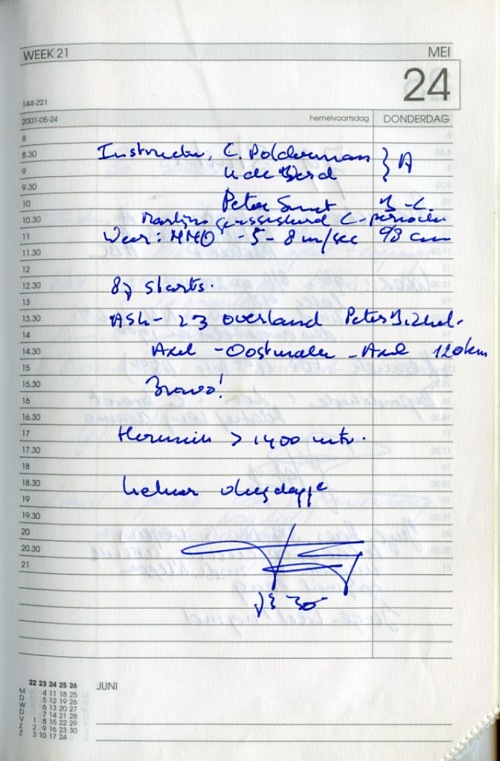 WEEK 21 MEI
24
144-221
2001-05-24 hemelvaartsdag DONDERDAG
8
8.30 C. Polderman } A
9
9.30
10 Peter Smet B-C.
10.30 C-periode
11 Weer: NNO - 5-8 m/sec
11.30
12
12.30 87 starts.
13
13.30 ASK-23 overland Peter
14
14.30 Axel - Oostmalle - Axel 120km
15
15.30 Bravo!
16
16.30
17 Thermiek > 1400 mtr.
17.30
18
18.30 Lekker vliegdagje
19
19.30
20
20.30
21
22 23 24 25 26
M 4 11 18 25
D 5 12 19 26
W 6 13 20 27
D 7 14 21 28
V 1 8 15 22 29
Z 2 9 16 23 30
Z 3 10 17 24
JUNI